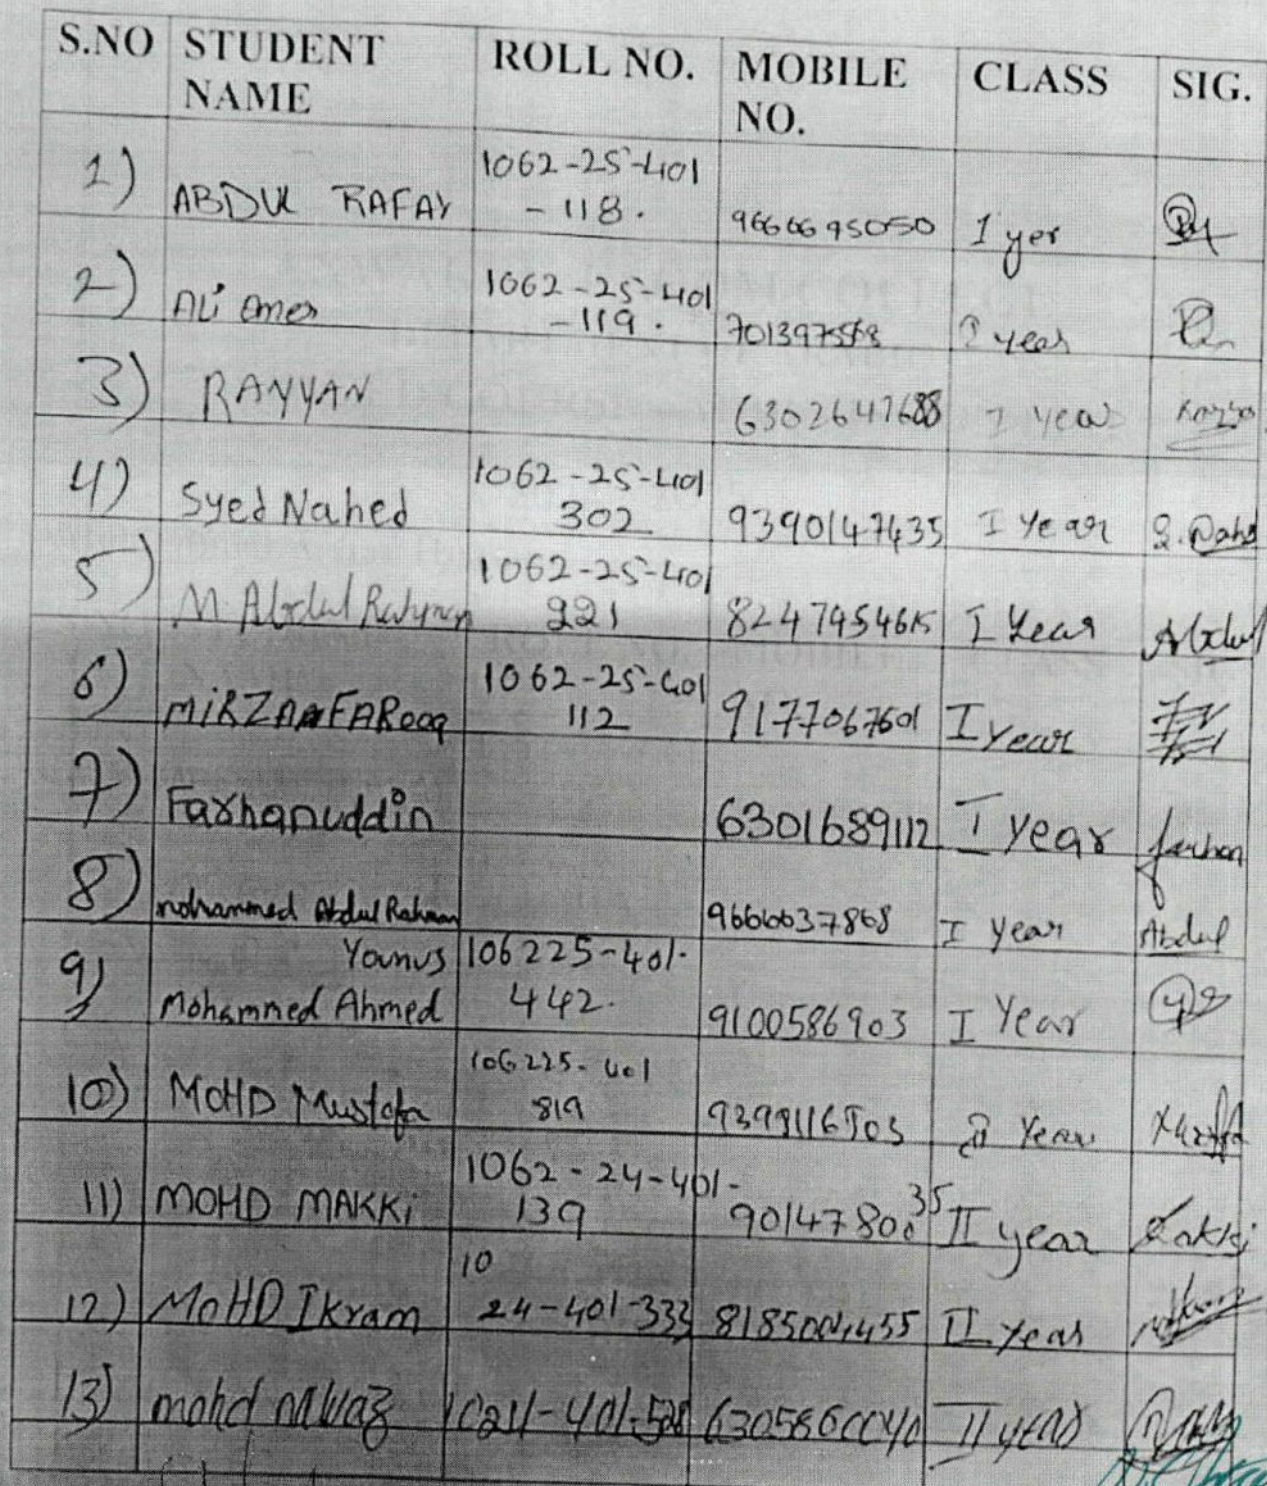 S.NO STUDENT NAME ROLL NO. MOBILE NO. CLASS SIG.
1) ABDUL RAFAY 1062-25-401-118. 9666695050 I yer
2) Ali Omer 1062-25-401-119. year
3) RAYYAN 6302647688 I year
4) Syed Nahed 1062-25-401 302 9390147435 I Year
5) M. Abdul 1062-25-401 221 I Year Abdul
6) MiRZA FARooq 1062-25-401 112 9177067601 I year
7) Farhanuddin 6301689112 I year farhan
8) mohammed Abdul Rahman 9666637868 I year Abdul
9) Younus Mohammed Ahmed 106225-401-442. 9100586903 I Year
10) MOHD Mustafa 106225-401 819 Year
11) MOHD MAKKi 1062-24-401-139 II year Makki
12) MOHD Ikram 10 24-401-333 II year
13) mohd nawaz II year